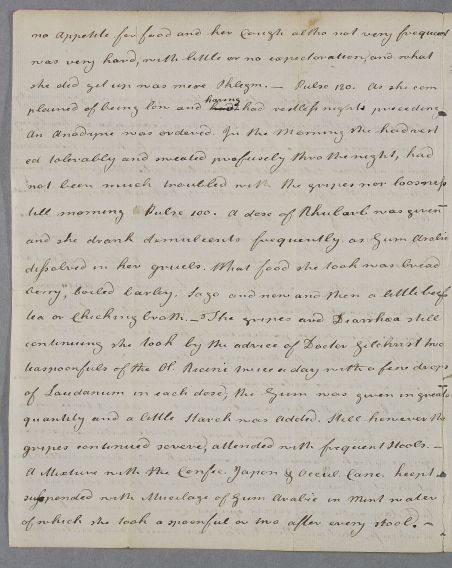 no appetite for food and her Cough altho not very frequent
was very hard, with little or no expectoration, and what
she did get up was mere Phlegm. — Pulse 120. As she com
plained of being low and having had restless nights preceding
An Anodyne was ordered. In the Morning she had rest
ed tolerably and sweated profusely thro the night, had
not been much troubled with the gripes nor loosness
till morning Pulse 100. A dose of Rhubarb was given
and she drank demulcents frequently as Gum Arabic
dissolved in her gruels. What food she took was bread
berry, boiled barley, Sago and now and then a little beef
tea or Chicking broth. — The gripes and Diarrhœa still
continuing she took by the advice of Doctor Gilchrist two
teaspoonfuls of the Ol. Ricini twice a day with a few drops
of Laudanum in each dose, the Gum was given in great
quantity and a little Starch was added. Still however the
gripes continued severe, attended with frequent Stools. —
A Mixture with the Confec. Japon & Occul. Canc. keept
suspended with Mucilage of Gum Arabic in Mint water
of which she took a spoonful or two after every stool. —